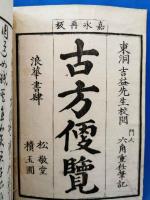 嘉永再板
東洞吉益先生校閲
門人 六角重任筆記
古方便覧
浪華書肆
松敬堂
積玉圃